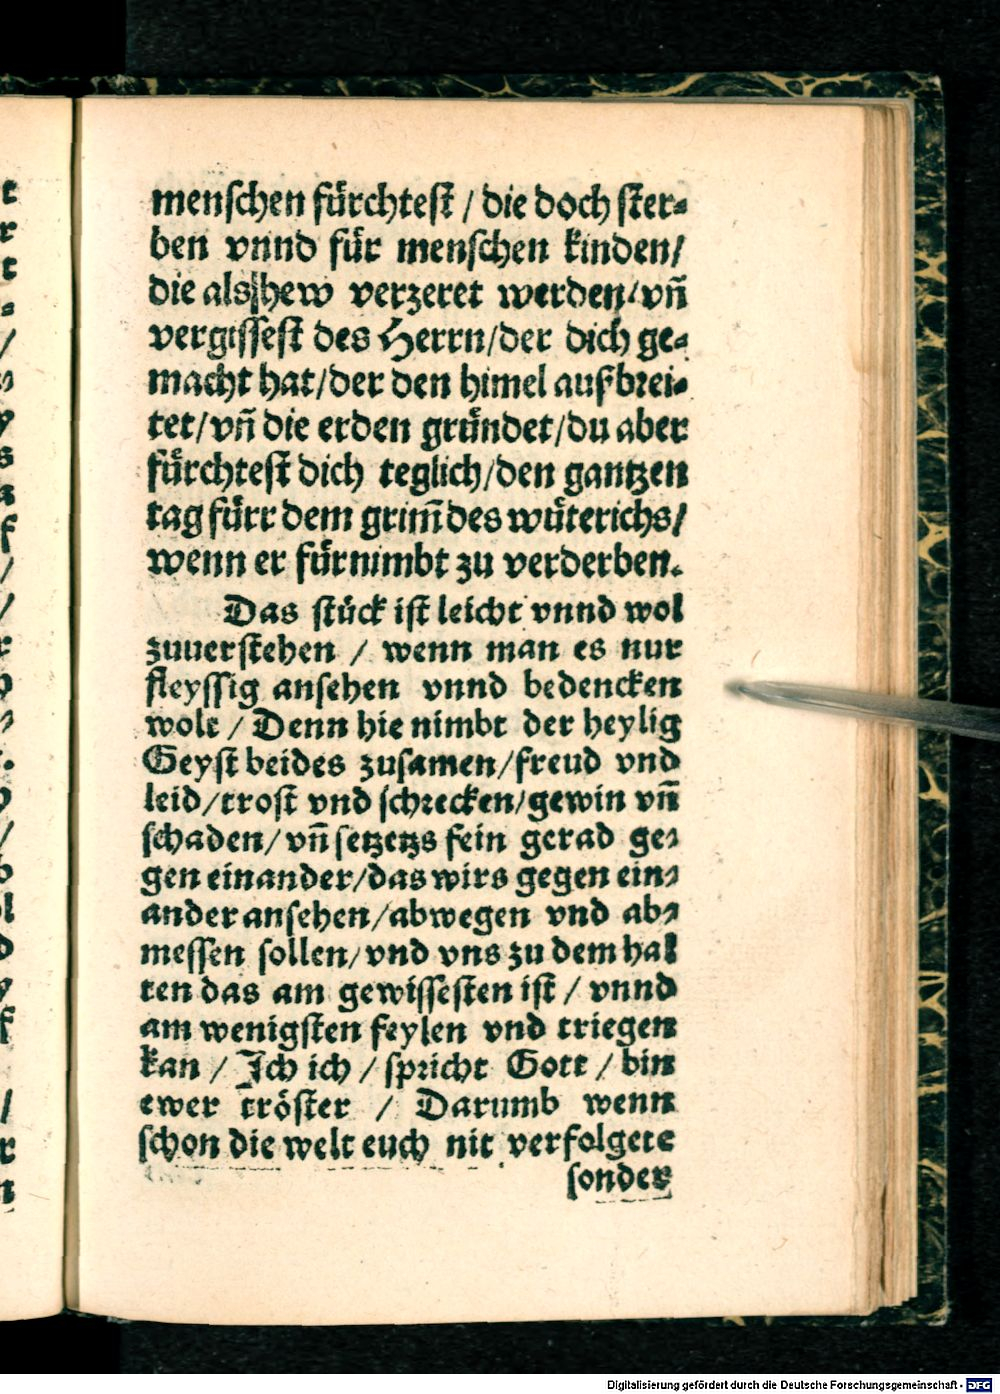 menschen fürchtest / die doch ster⸗
ben vnnd für menschen kinden/
die als hew verzeret werden/ vñ
vergissest des Herrn/der dich ge⸗
macht hat/der den himel außbrei⸗
tet/vñ die erden gründet/du aber
fürchtest dich teglich/den gantzen
tag fürr dem grim̃ des wüterichs/
wenn er fürnimbt zu verderben.
Das stück ist leicht vnnd wol
zuuerstehen / wenn man es nur
fleyssig ansehen vnnd bedencken
wolt / Denn hie nimbt der heylig
Geyst beides zusamen/freud vnd
leid/trost vnd schrecken/gewin vñ
schaden/vñ setzetzs fein gerad ge⸗
gen einander/das wirs gegen ein⸗
ander ansehen/abwegen vnd ab⸗
messen sollen/vnd vns zu dem hal
ten das am gewissesten ist / vnnd
am wenigsten feylen vnd triegen
kan / Ich ich / spricht Gott / bin
ewer tröster / Darumb wenn
schon die welt euch nit verfolgete
sonder
Digitalisierung gefördert durch die Deutsche Forschungsgemeinschaft - DFG